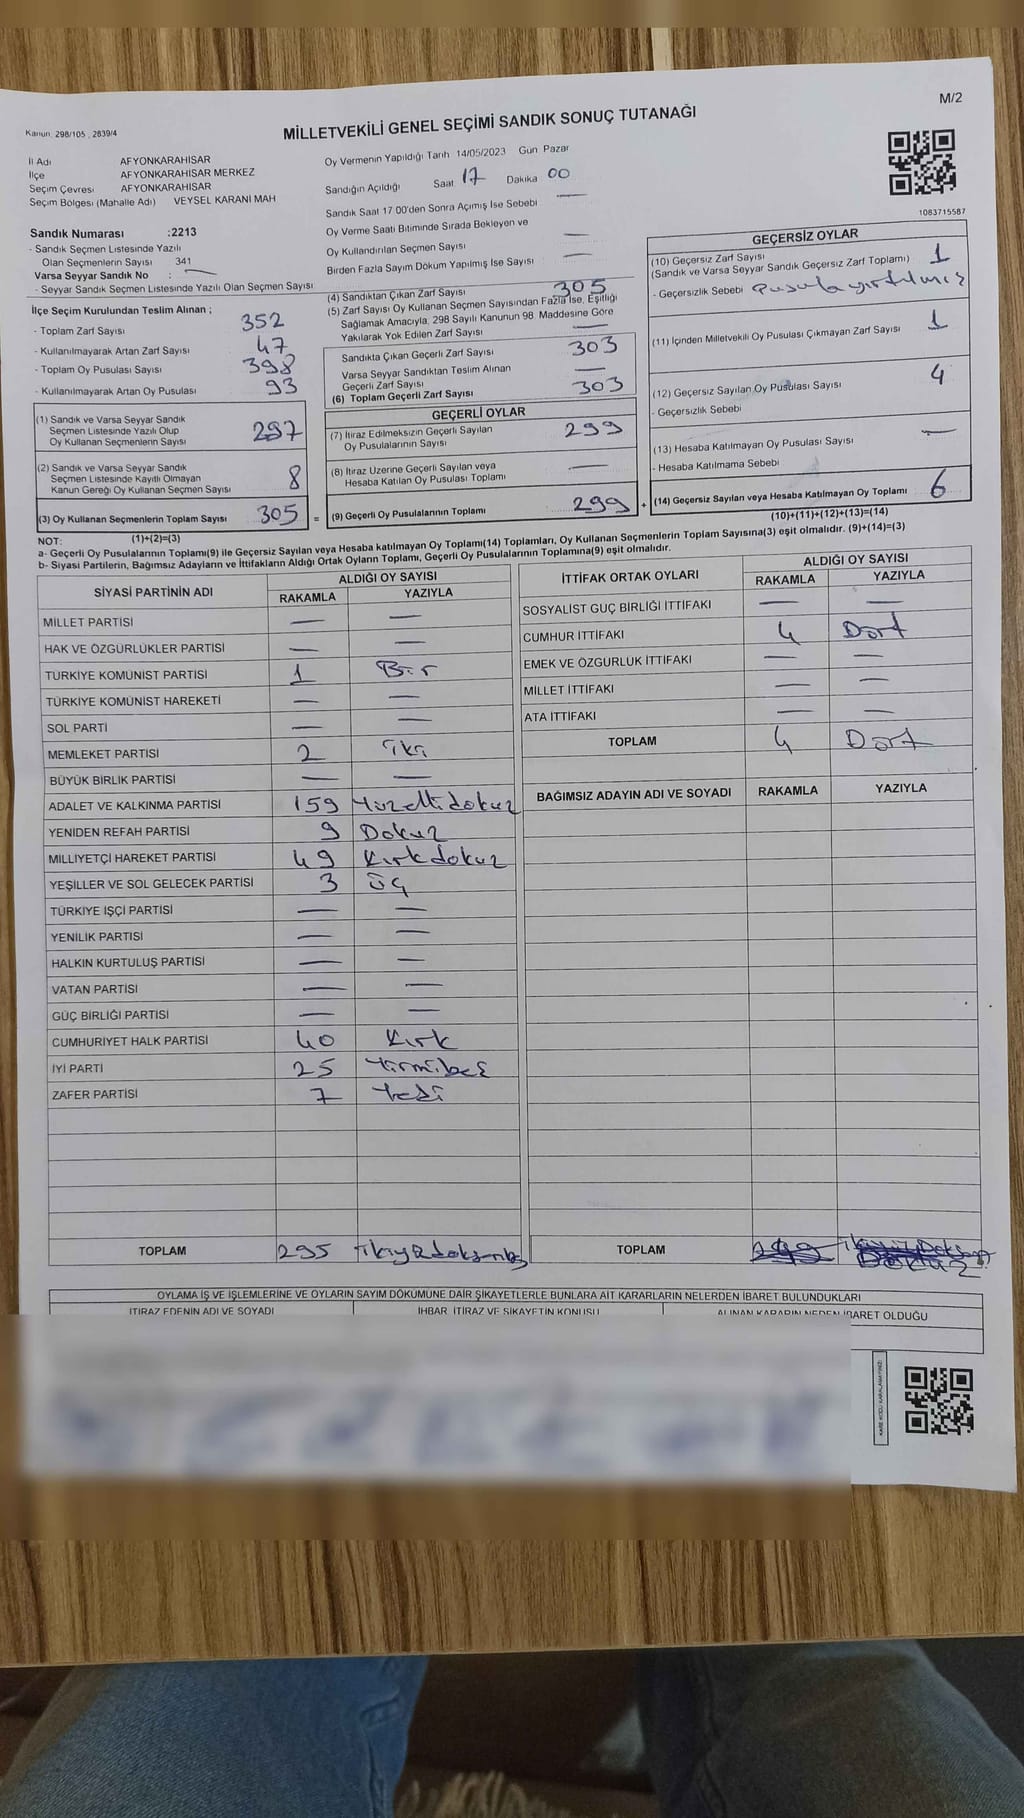 M/2
Kanun. 298/105 , 2839/4
MİLLETVEKİLİ GENEL SEÇİMİ SANDIK SONUÇ TUTANAĞI
İl Adı AFYONKARAHİSAR
İlçe AFYONKARAHİSAR MERKEZ
Seçim Çevresi AFYONKARAHİSAR
Seçim Bölgesi (Mahalle Adı) VEYSEL KARANİ MAH
Sandık Numarası :2213
- Sandık Seçmen Listesinde Yazılı
Olan Seçmenlerin Sayısı 341
Varsa Seyyar Sandık No : —
- Seyyar Sandık Seçmen Listesinde Yazılı Olan Seçmen Sayısı
Oy Vermenin Yapıldığı Tarih 14/05/2023 Gün Pazar
Sandığın Açıldığı Saat 17 Dakika 00
Sandık Saat 17 00'den Sonra Açımış İse Sebebi —
Oy Verme Saati Bitiminde Sırada Bekleyen ve
Oy Kullandırılan Seçmen Sayısı —
Birden Fazla Sayım Döküm Yapılmış İse Sayısı —
1083715587
İlçe Seçim Kurulundan Teslim Alınan ;
- Toplam Zarf Sayısı 352
- Kullanılmayarak Artan Zarf Sayısı 47
- Toplam Oy Pusulası Sayısı 398
- Kullanılmayarak Artan Oy Pusulası 93
(1) Sandık ve Varsa Seyyar Sandık
Seçmen Listesinde Yazılı Olup
Oy Kullanan Seçmenlerin Sayısı 297
(2) Sandık ve Varsa Seyyar Sandık
Seçmen Listesinde Kayıtlı Olmayan
Kanun Gereği Oy Kullanan Seçmen Sayısı 8
(3) Oy Kullanan Seçmenlerin Toplam Sayısı 305 =
(1)+(2)=(3)
(4) Sandıktan Çıkan Zarf Sayısı 305
(5) Zarf Sayısı Oy Kullanan Seçmen Sayısından Fazla İse, Eşitliği
Sağlamak Amacıyla, 298 Sayılı Kanunun 98. Maddesine Göre
Yakılarak Yok Edilen Zarf Sayısı —
Sandıkta Çıkan Geçerli Zarf Sayısı 303
Varsa Seyyar Sandıktan Teslim Alınan
Geçerli Zarf Sayısı —
(6) Toplam Geçerli Zarf Sayısı 303
GEÇERLİ OYLAR
(7) İtiraz Edilmeksizin Geçerli Sayılan
Oy Pusulalarının Sayısı 299
(8) İtiraz Üzerine Geçerli Sayılan veya
Hesaba Katılan Oy Pusulası Toplamı —
(9) Geçerli Oy Pusulalarının Toplamı 299 +
GEÇERSİZ OYLAR
(10) Geçersiz Zarf Sayısı 1
(Sandık ve Varsa Seyyar Sandık Geçersiz Zarf Toplamı)
- Geçersizlik Sebebi Pusula yırtılmış
(11) İçinden Milletvekili Oy Pusulası Çıkmayan Zarf Sayısı 1
(12) Geçersiz Sayılan Oy Pusulası Sayısı 4
- Geçersizlik Sebebi
(13) Hesaba Katılmayan Oy Pusulası Sayısı —
- Hesaba Katılmama Sebebi
(14) Geçersiz Sayılan veya Hesaba Katılmayan Oy Toplamı 6
(10)+(11)+(12)+(13)=(14)
NOT:
a- Geçerli Oy Pusulalarının Toplamı(9) ile Geçersiz Sayılan veya Hesaba katılmayan Oy Toplamı(14) Toplamları, Oy Kullanan Seçmenlerin Toplam Sayısına(3) eşit olmalıdır. (9)+(14)=(3)
b- Siyasi Partilerin, Bağımsız Adayların ve İttifakların Aldığı Ortak Oyların Toplamı, Geçerli Oy Pusulalarının Toplamına(9) eşit olmalıdır.
SİYASİ PARTİNİN ADI ALDIĞI OY SAYISI
RAKAMLA YAZIYLA
MİLLET PARTİSİ — —
HAK VE ÖZGÜRLÜKLER PARTİSİ — —
TÜRKİYE KOMÜNİST PARTİSİ 1 Bir
TÜRKİYE KOMÜNİST HAREKETİ — —
SOL PARTİ — —
MEMLEKET PARTİSİ 2 iki
BÜYÜK BİRLİK PARTİSİ — —
ADALET VE KALKINMA PARTİSİ 159 Yüzellidokuz
YENİDEN REFAH PARTİSİ 9 Dokuz
MİLLİYETÇİ HAREKET PARTİSİ 49 Kırkdokuz
YEŞİLLER VE SOL GELECEK PARTİSİ 3 üç
TÜRKİYE İŞÇİ PARTİSİ — —
YENİLİK PARTİSİ — —
HALKIN KURTULUŞ PARTİSİ — —
VATAN PARTİSİ — —
GÜÇ BİRLİĞİ PARTİSİ — —
CUMHURİYET HALK PARTİSİ 40 Kırk
İYİ PARTİ 25 Yirmibeş
ZAFER PARTİSİ 7 Yedi
TOPLAM 295
İTTİFAK ORTAK OYLARI ALDIĞI OY SAYISI
RAKAMLA YAZIYLA
SOSYALİST GÜÇ BİRLİĞİ İTTİFAKI — —
CUMHUR İTTİFAKI 4 Dört
EMEK VE ÖZGÜRLÜK İTTİFAKI — —
MİLLET İTTİFAKI — —
ATA İTTİFAKI — —
TOPLAM 4 Dört
BAĞIMSIZ ADAYIN ADI VE SOYADI RAKAMLA YAZIYLA
TOPLAM 299
OYLAMA İŞ VE İŞLEMLERİNE VE OYLARIN SAYIM DÖKÜMÜNE DAİR ŞİKAYETLERLE BUNLARA AİT KARARLARIN NELERDEN İBARET BULUNDUKLARI
İTİRAZ EDENİN ADI VE SOYADI İHBAR, İTİRAZ VE ŞİKAYETİN KONUSU ALINAN KARARIN NEDEN İBARET OLDUĞU
KARE KODU KARALAMAYINIZ.